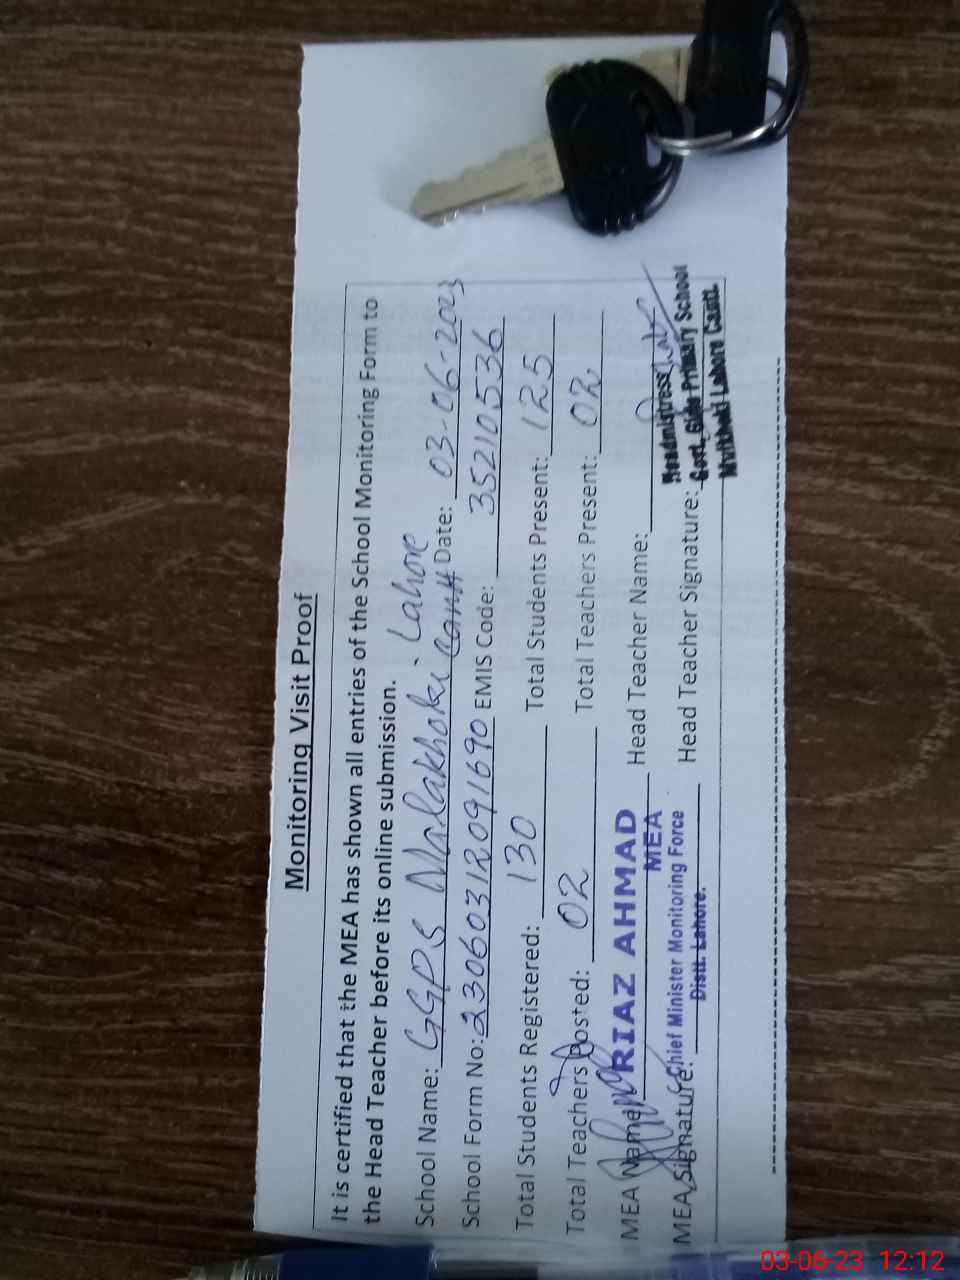 Monitoring Visit Proof
It is certified that the MEA has shown all entries of the School Monitoring Form to
the Head Teacher before its online submission.
School Name: GGPS Malakhoki Cantt Lahore Date: 03-06-2023
School Form No: 2306031209 1690 EMIS Code: 35210536
Total Students Registered: 130 Total Students Present: 125
Total Teachers Posted: 02 Total Teachers Present: 02
MEA Name: RIAZ AHMAD Head Teacher Name:
MEA
MEA Signature: Chief Minister Monitoring Force Head Teacher Signature:
Distt. Lahore.
Headmistress
Govt. Girls Primary School
Lahore Cantt.
03-06-23 12:12